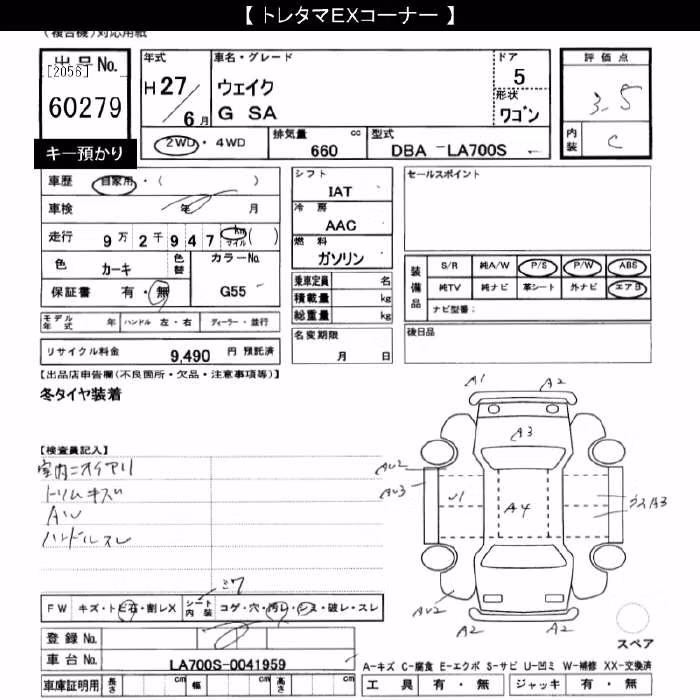 【 トレタマEXコーナー 】
(複合機)対応用紙
出品No.
[2056]
60279
キー預かり
年式
H 27/6月
車名・グレード
ウェイク
G SA
ドア
5
形状
ワゴン
2WD・4WD
排気量 cc
660
型式
DBA -LA700S
評価点
3.5
内装
C
車歴 自家用・( )
車検 年 月
走行 9万2千947 km マイル ( )
色 カーキ
色替
カラーNo.
G55
保証書 有・無
モデル年式 年
ハンドル 左・右
ディーラー・並行
リサイクル料金 9,490 円 預託済
シフト
IAT
冷房
AAC
燃料
ガソリン
乗車定員 名
積載量 kg
総重量 kg
名変期限
月 日
セールスポイント
装備品
S/R 純A/W P/S P/W ABS
純TV 純ナビ 革シート 外ナビ エアB
ナビ型番:
後日品
【出品店申告欄(不良箇所・欠品・注意事項等)】
冬タイヤ装着
【検査員記入】
トリムキズ
ハンドルスレ
A1
A2
A3
AU2
AU3
U1
A4
A3
AU2
A2
A2
スペア
FW キズ・トビ石・割レX
シート内装
コゲ・穴・汚レ・シミ・破レ・スレ
登録No.
車台No.
LA700S-0041959
車庫証明用 長さ cm 幅 cm 高さ cm
A-キズ C-腐食 E-エクボ S-サビ U-凹ミ W-補修 XX-交換済
工具 有・無 ジャッキ 有・無